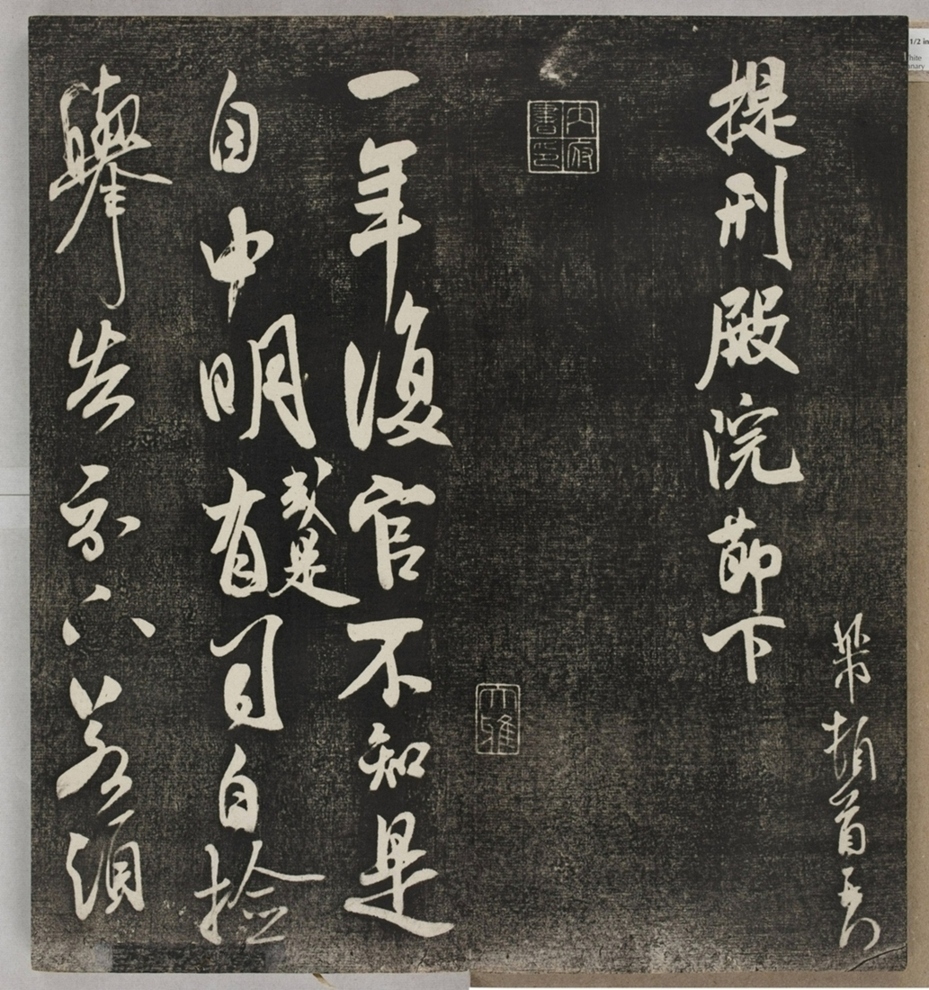 頓首再拜
提刑殿院節下
内府書印
大雅
一年復官不知是
自申明有司自撿
或是
舉告示下若須